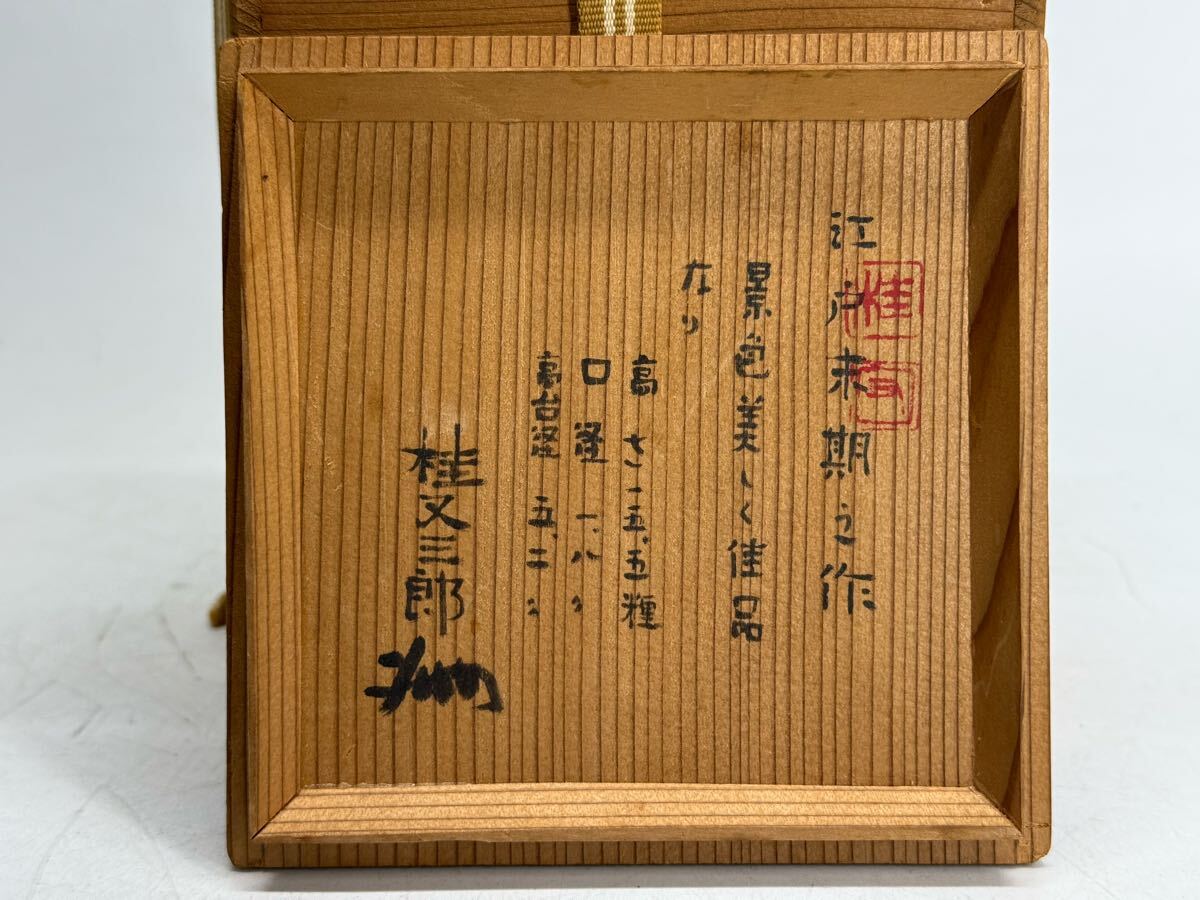 江戸末期之作
景色美しく佳品
なり
高さ一五、五糎
口径一、八〃
高台径五、二〃
桂又三郎
桂
又